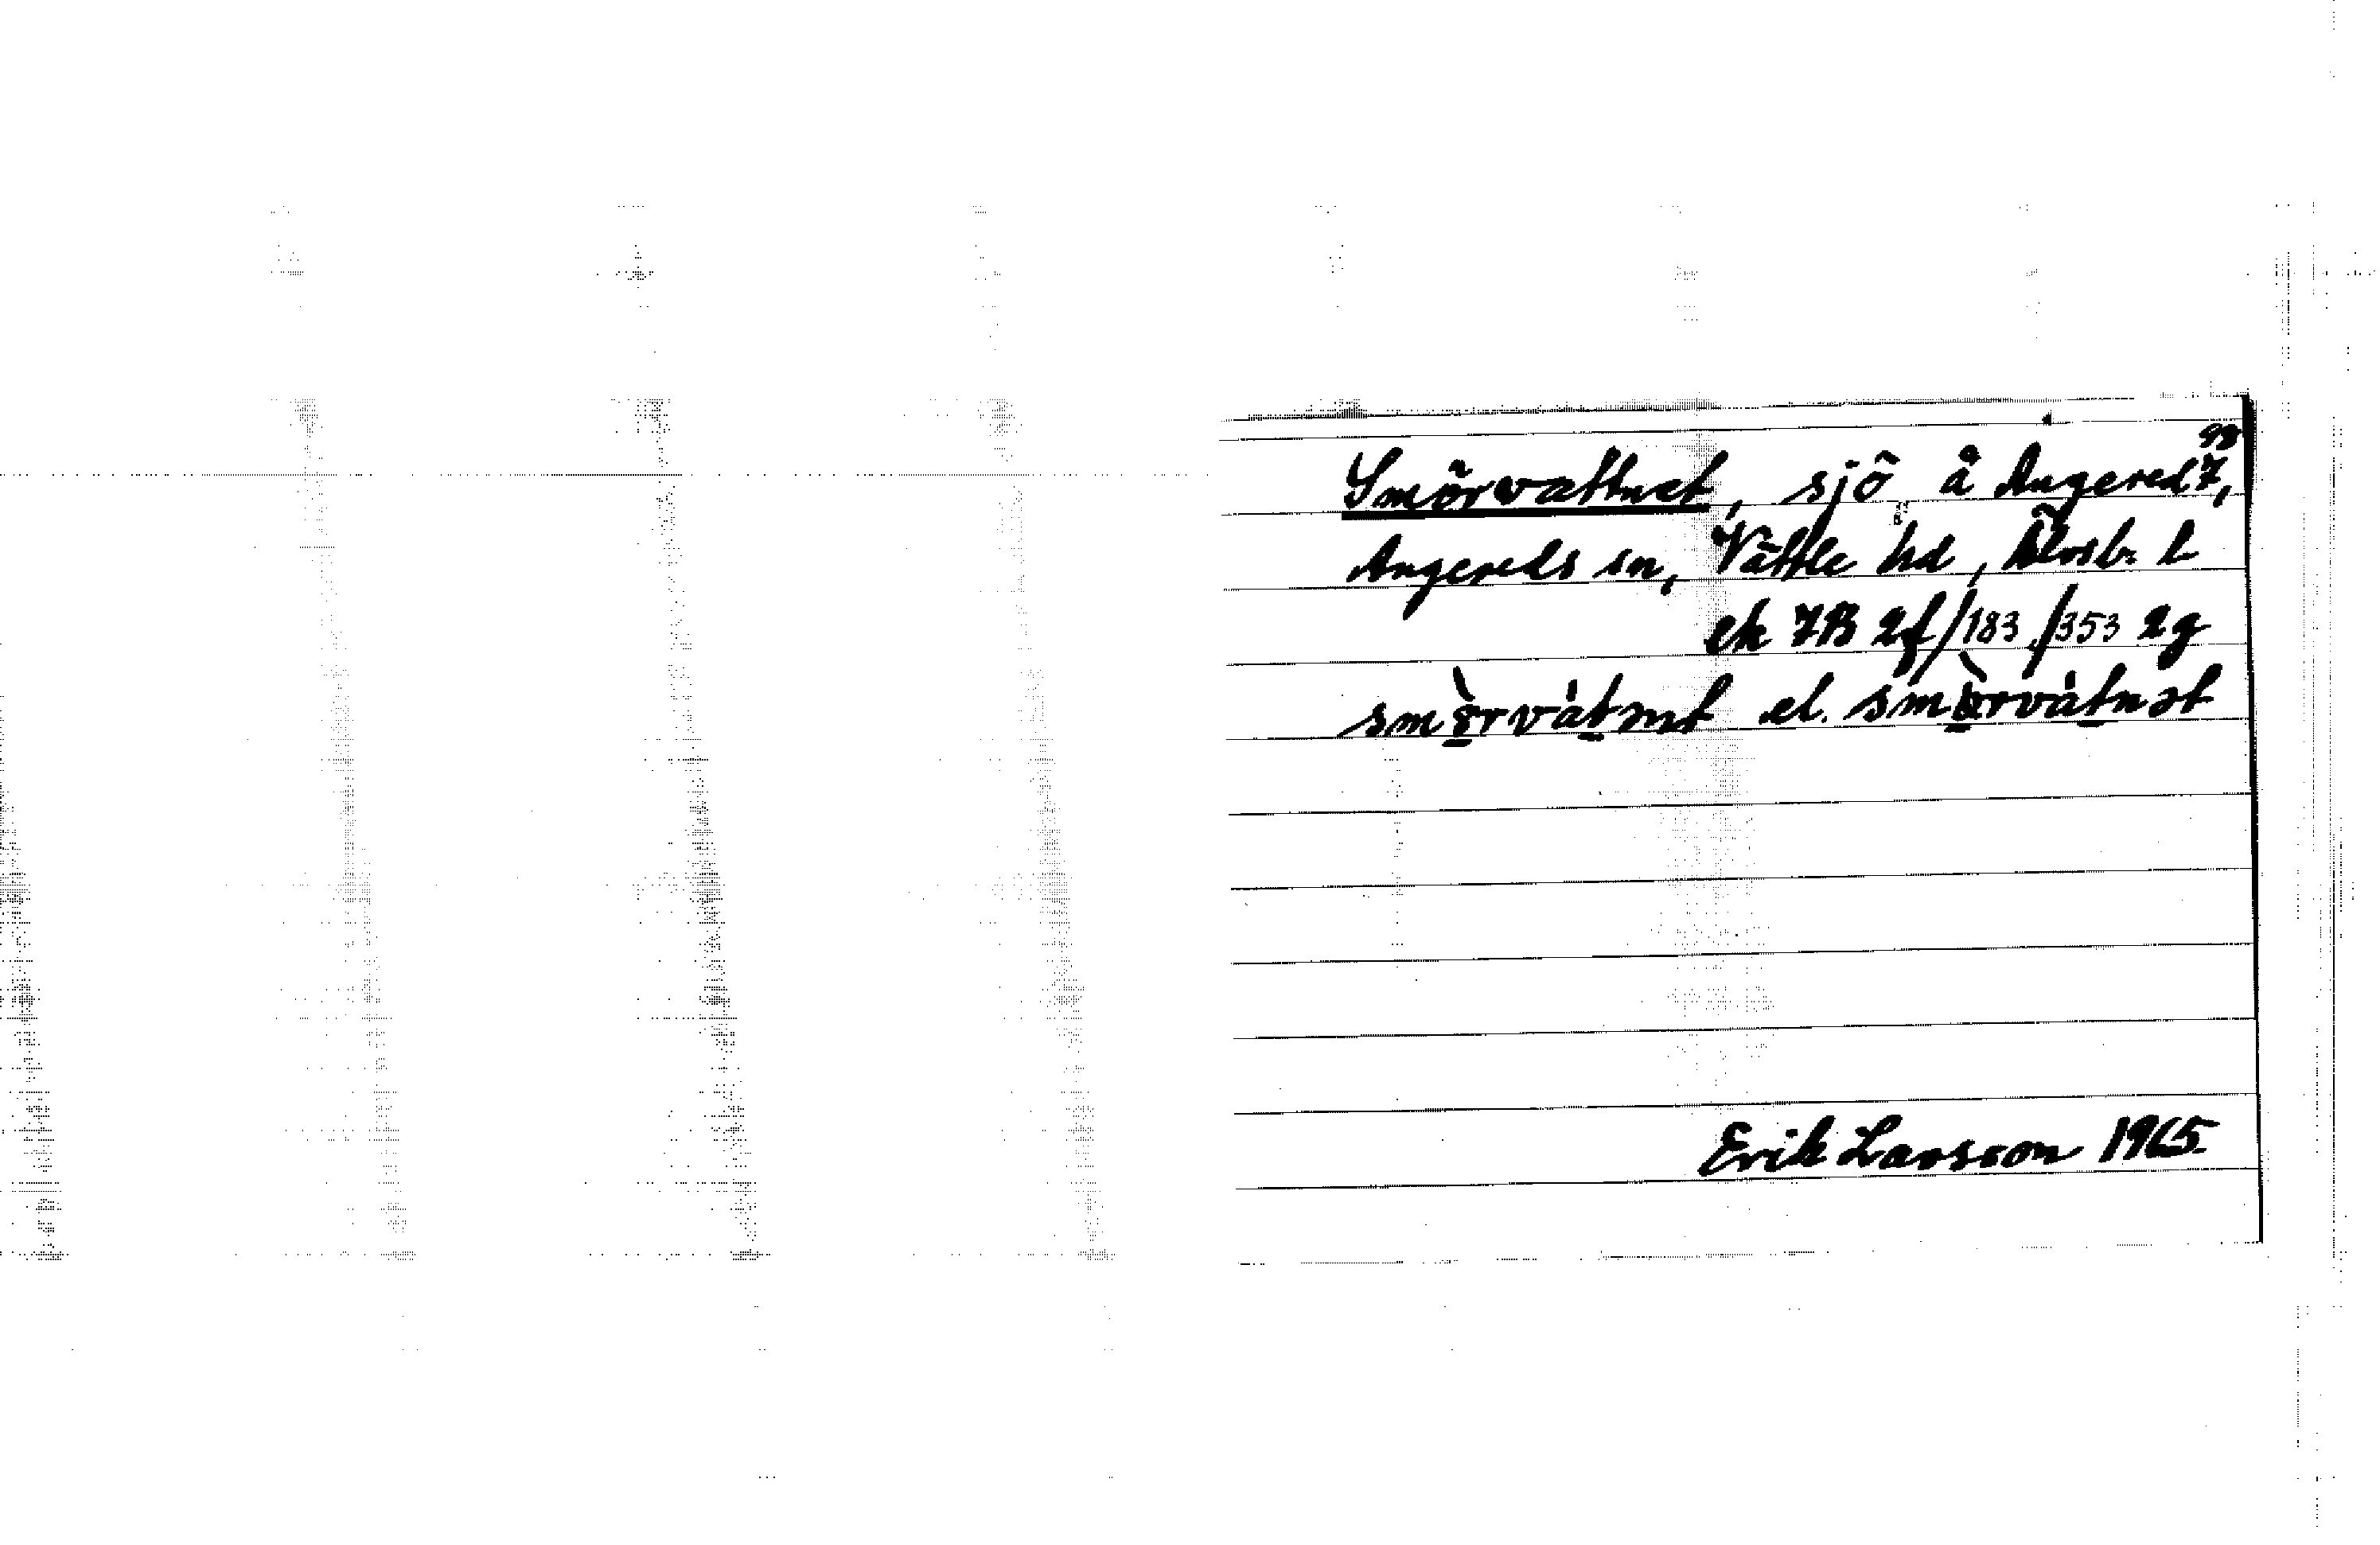 Smörvattnet, sjö å Angered 7,
Angereds sn, Vättle hd, Älvsb. l
ek 7B 2f/183/353 2g
smörvàtnət el. smòrvàtnət
Erik Larsson 1965.